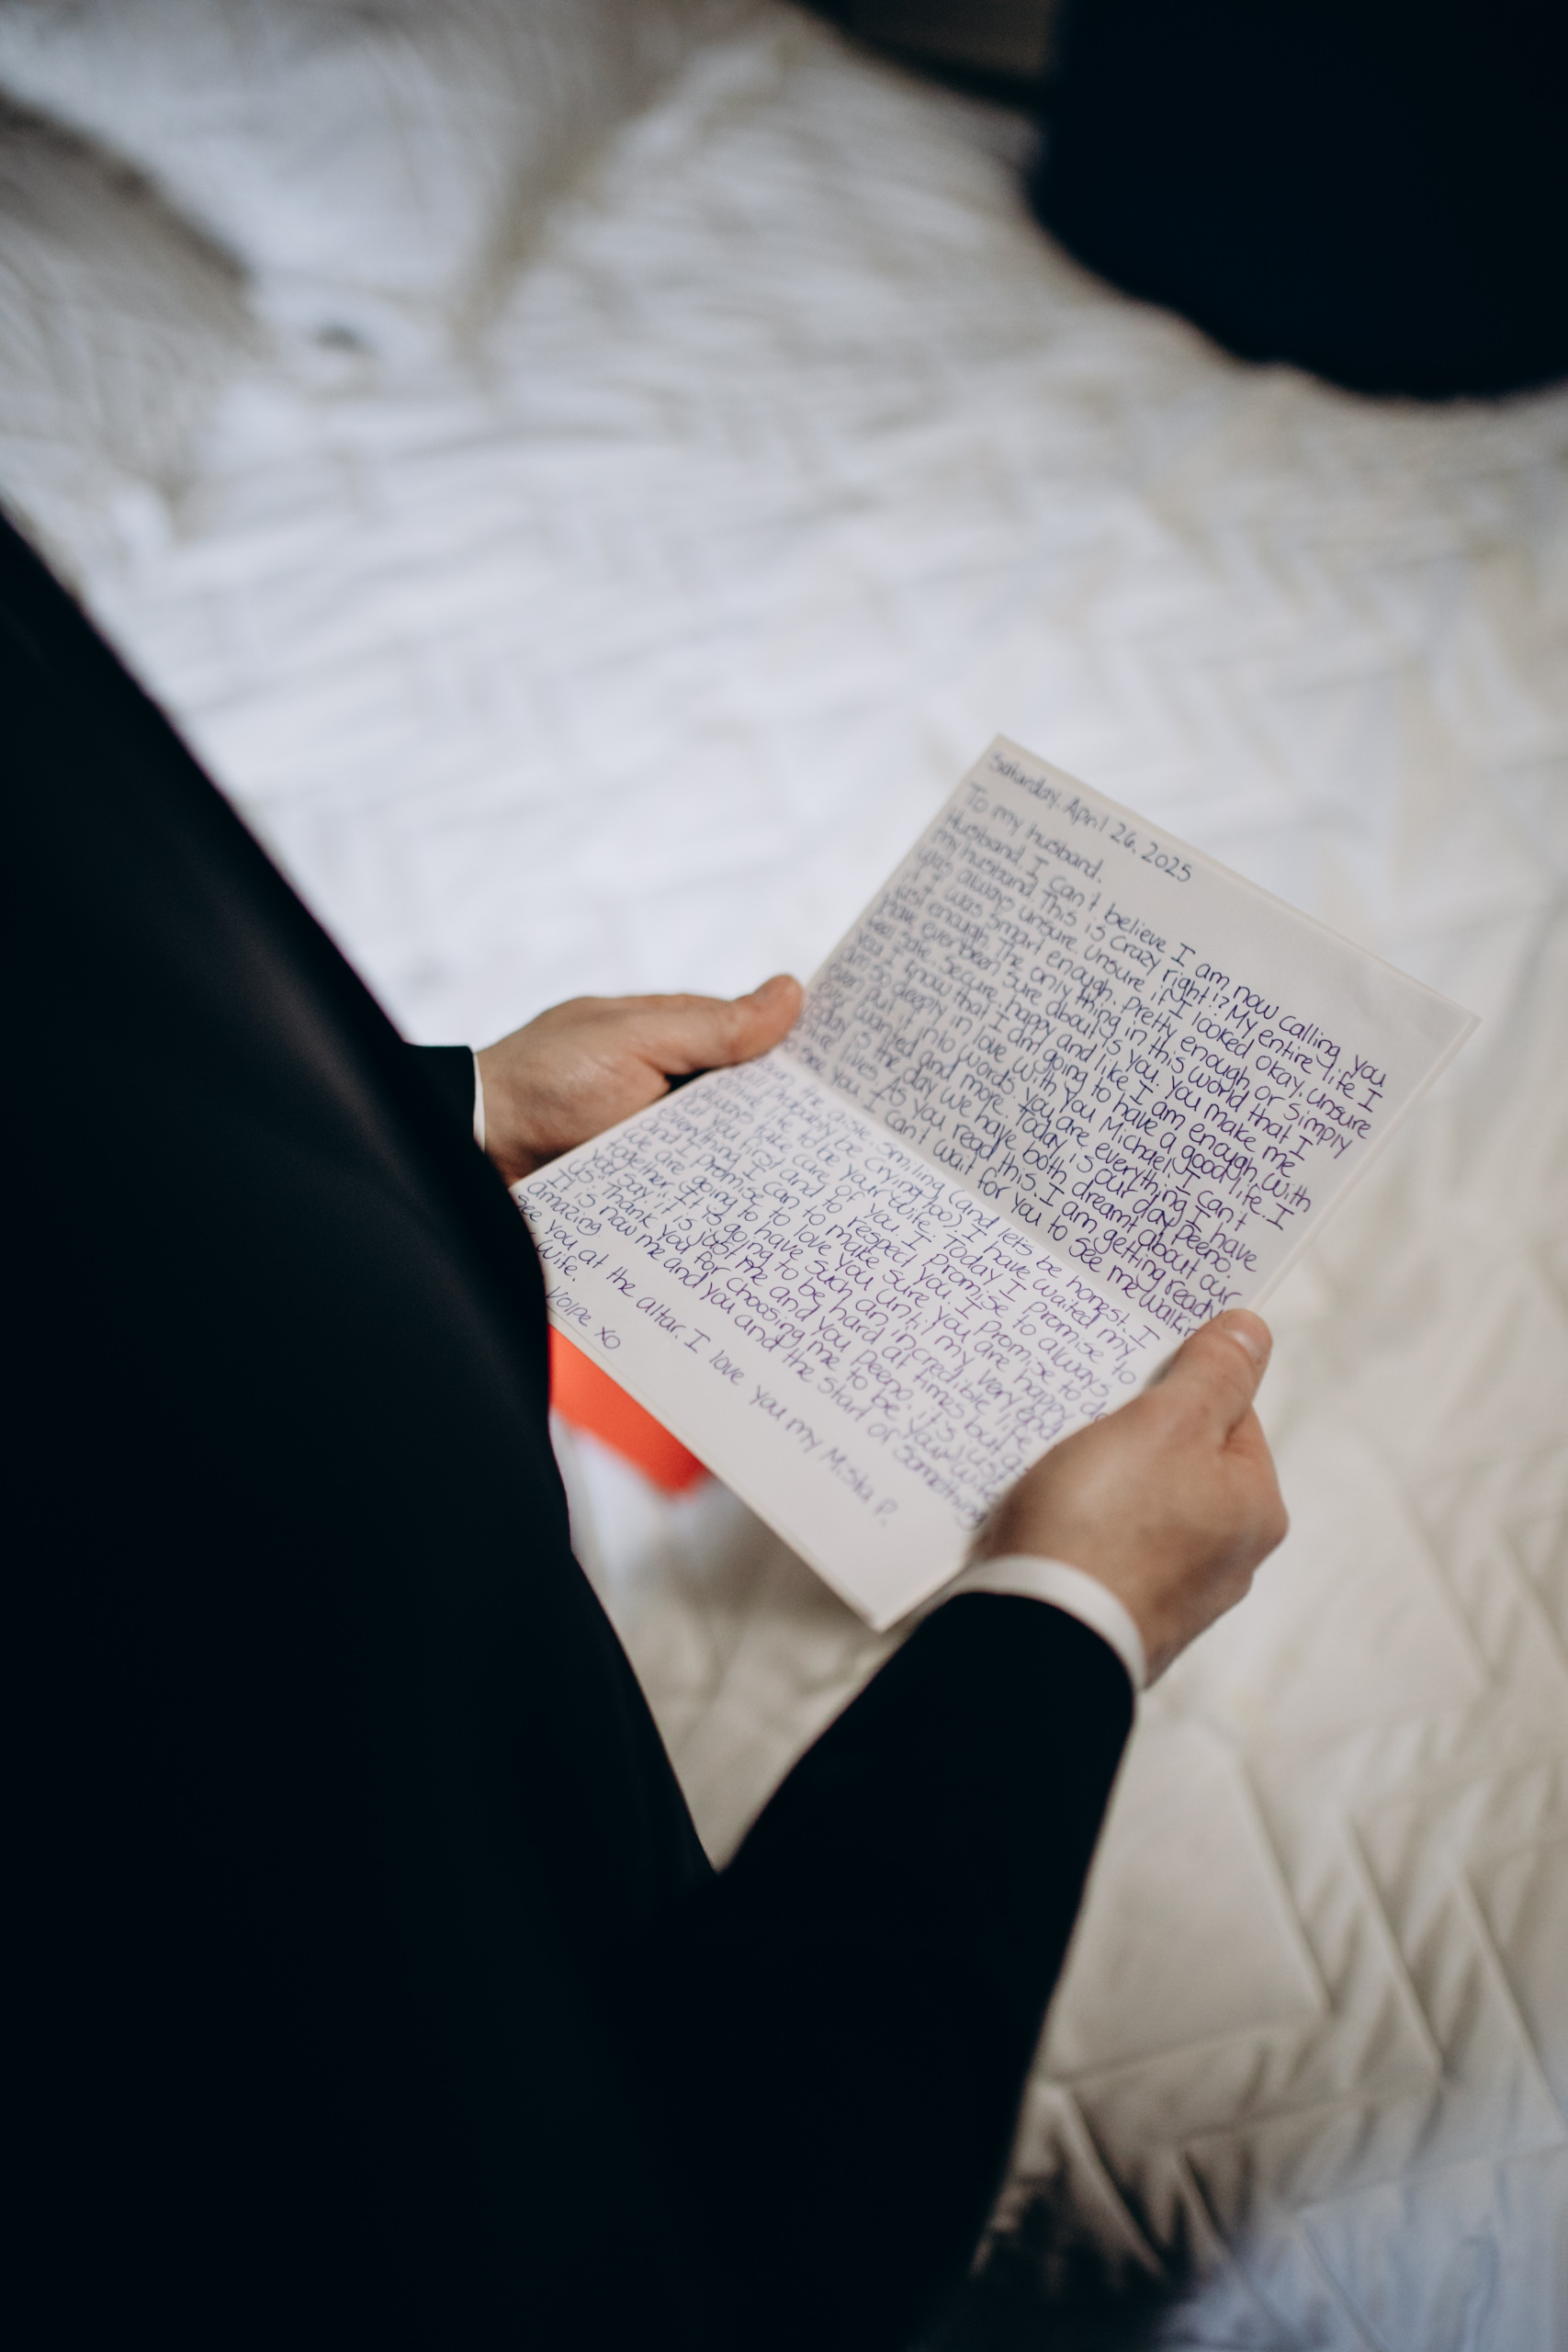 Saturday, April 26, 2025
To my husband.
Husband. I can't believe I am now calling you
my husband. This is crazy right!? My entire life I
was always unsure. Unsure if I looked okay, unsure
if I was smart enough, pretty enough, or simply
just enough. The only thing in this world that I
have ever been sure about is you. You make me
feel safe, secure, happy and like I am enough. With
you I know that I am going to have a good life. I
am so deeply in love with you Michael. I can't
even put it into words. You are everything I have
ever wanted and more. Today is our day Peeno.
Today is the day we have both dreamt about our
entire lives. As you read this, I am getting ready
to see you. I can't wait for you to see me walkin
down the aisle smiling (and let's be honest, I
will probably be crying too). I have waited my
entire life to be your wife. Today I promise to
always take care of you. I promise to always
put you first and to respect you. I promise to do
everything I can to make sure you are happy
and I promise to love you until my very end.
We are going to have such an incredible life
together. It is going to be hard at times but as
you say: it is just me and you Peeno, it's just
us. Thank you for choosing me to be your wife.
It is now me and you and the start of something
amazing
see you at the altar. I love you my Mista P.
Wife.
Volpe xo